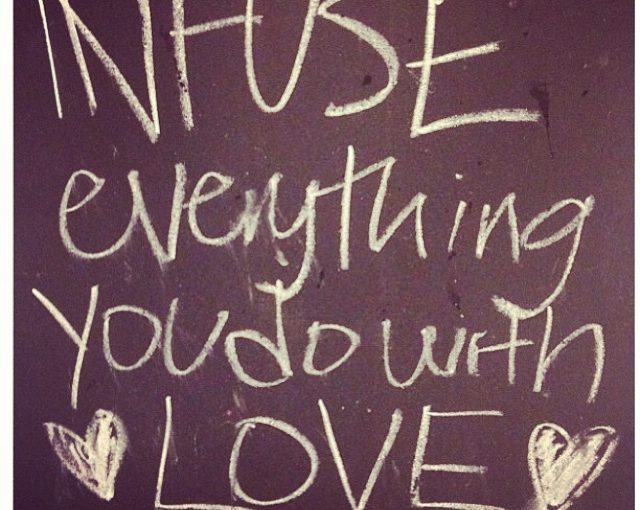 INFUSE
everything
YOU do with
LOVE